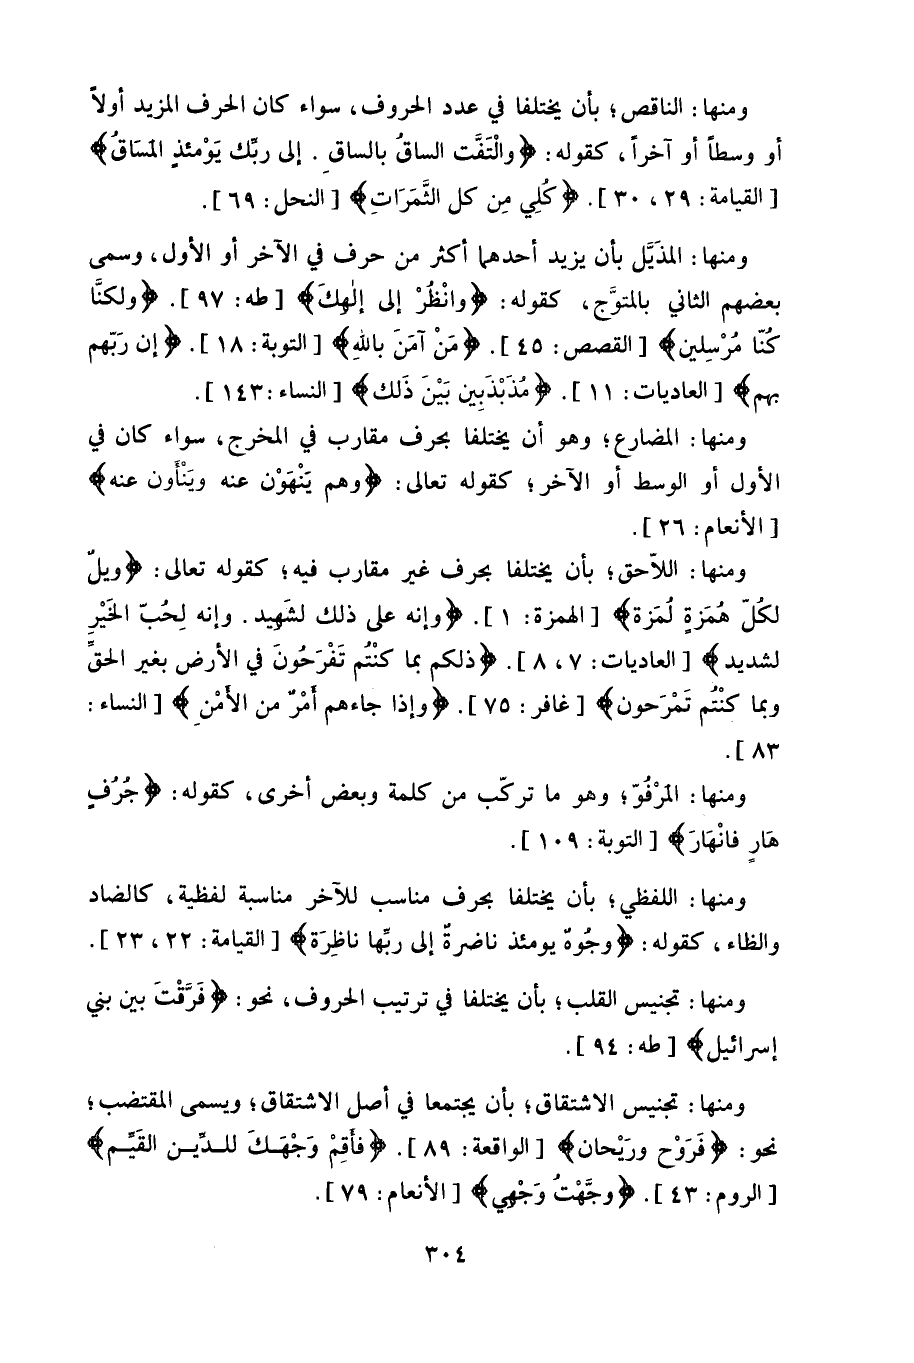 ومنها: الناقص؛ بأن يختلفا في عدد الحروف، سواء كان الحرف المزيد أولاً
أو وسطاً أو آخراً، كقوله: ﴿والْتَفَّت الساقُ بالساقِ . إلى ربِّك يَوْمئذٍ المَساقُ﴾
[ القيامة: ٢٩ ، ٣٠ ]. ﴿كُلِي مِن كل الثَّمَرَاتِ﴾ [ النحل: ٦٩ ].
ومنها: المذَيَّل بأن يزيد أحدهما أكثر من حرف في الآخر أو الأول، وسمى
بعضهم الثاني بالمتوَّج، كقوله: ﴿وانْظُرْ إلى إلٰهِكَ﴾ [ طه: ٩٧ ]. ﴿ولكنَّا
كُنَّا مُرْسلين﴾ [ القصص: ٤٥ ]. ﴿مَنْ آمَنَ بالله﴾ [ التوبة: ١٨ ]. ﴿إن رَبّهم
بهم﴾ [ العاديات: ١١ ]. ﴿مُذَبْذَبِين بَيْنَ ذَلك﴾ [ النساء: ١٤٣ ].
ومنها: المضارع؛ وهو أن يختلفا بحرف مقارب في المخرج، سواء كان في
الأول أو الوسط أو الآخر؛ كقوله تعالى: ﴿وهم يَنْهَوْن عنه ويَنْأَون عنه﴾
[ الأنعام: ٢٦ ].
ومنها: اللاّحق؛ بأن يختلفا بحرف غير مقارب فيه؛ كقوله تعالى: ﴿ويلٌ
لكُلّ هُمَزةٍ لُمَزة﴾ [ الهمزة: ١ ]. ﴿وإنه على ذلك لشَهِيد. وإنه لِحُبّ الخَيْرِ
لشديد﴾ [ العاديات: ٧ ، ٨ ]. ﴿ذلكم بما كنْتُم تَفْرَحُونَ في الأرض بغير الحقِّ
وبما كنْتُم تَمْرَحون﴾ [ غافر: ٧٥ ]. ﴿وإذا جاءهم أَمْرٌ من الأَمْنِ﴾ [ النساء:
٨٣ ].
ومنها: المَرْفُوّ؛ وهو ما تركّب من كلمة وبعض أخرى، كقوله: ﴿جُرُفٍ
هَارٍ فانْهَارَ﴾ [ التوبة: ١٠٩ ].
ومنها: اللفظي؛ بأن يختلفا بحرف مناسب للآخر مناسبة لفظية، كالضاد
والظاء، كقوله: ﴿وجُوهٌ يومئذ ناضرةٌ إلى ربِّها ناظِرَة﴾ [ القيامة: ٢٢ ، ٢٣ ].
ومنها: تجنيس القلب؛ بأن يختلفا في ترتيب الحروف، نحو: ﴿فَرَّقْتَ بين بني
إسرائيل﴾ [ طه: ٩٤ ].
ومنها: تجنيس الاشتقاق؛ بأن يجتمعا في أصل الاشتقاق؛ ويسمى المقتضب؛
نحو: ﴿فَرَوْح ورَيْحان﴾ [ الواقعة: ٨٩ ]. ﴿فأَقِمْ وَجْهَكَ للدِّين القَيِّم﴾
[ الروم: ٤٣ ]. ﴿وجَّهْتُ وَجْهِي﴾ [ الأنعام: ٧٩ ].
٣٠٤